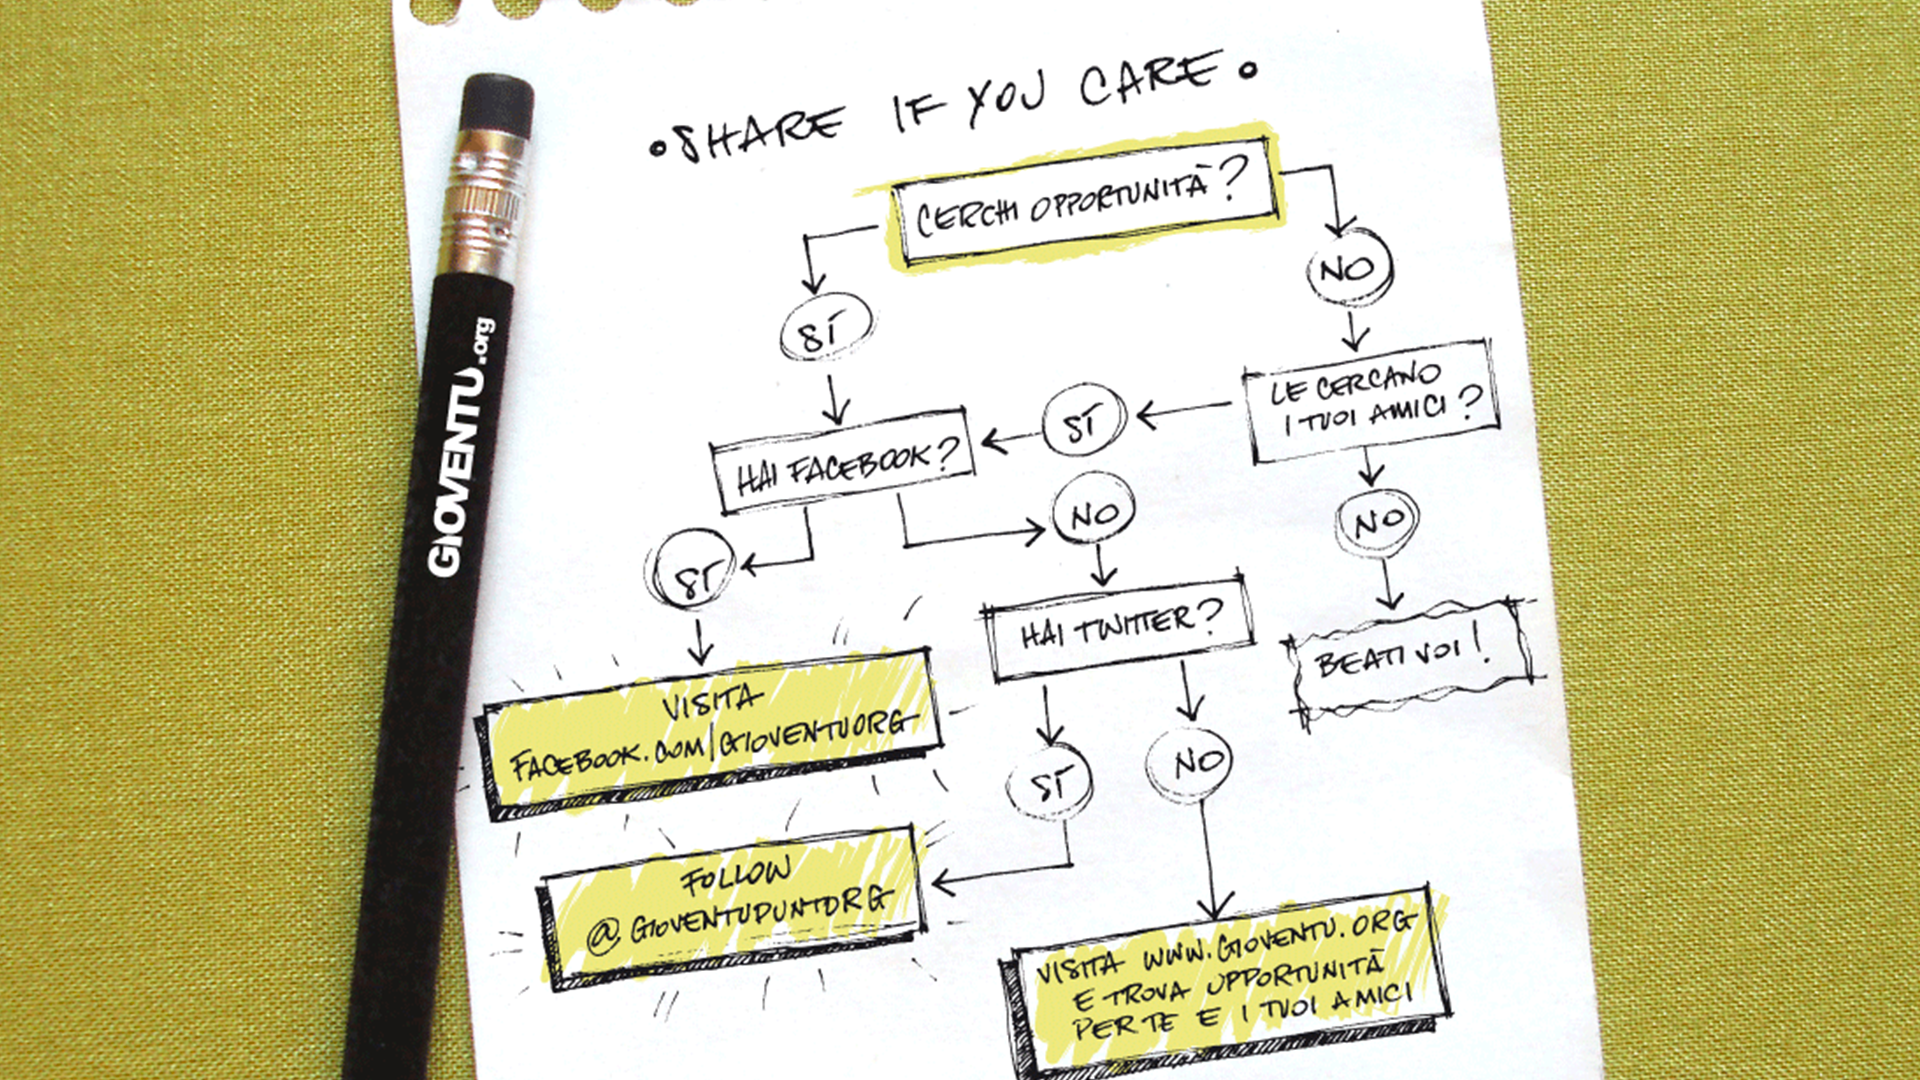 • SHARE IF YOU CARE •
CERCHI OPPORTUNITÀ?
NO
SÍ
LE CERCANO
I TUOI AMICI?
SÍ
HAI FACEBOOK?
NO
NO
SÍ
HAI TWITTER?
BEATI VOI!
VISITA
FACEBOOK.COM/GIOVENTUORG
SÍ
NO
FOLLOW
@GIOVENTUPUNTORG
VISITA WWW.GIOVENTU.ORG
E TROVA OPPORTUNITÀ
PER TE E I TUOI AMICI
GIOVENTU.org